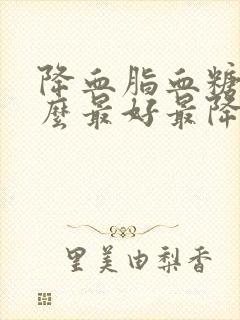 降血脂血糖
麼最好最降
里美由梨香